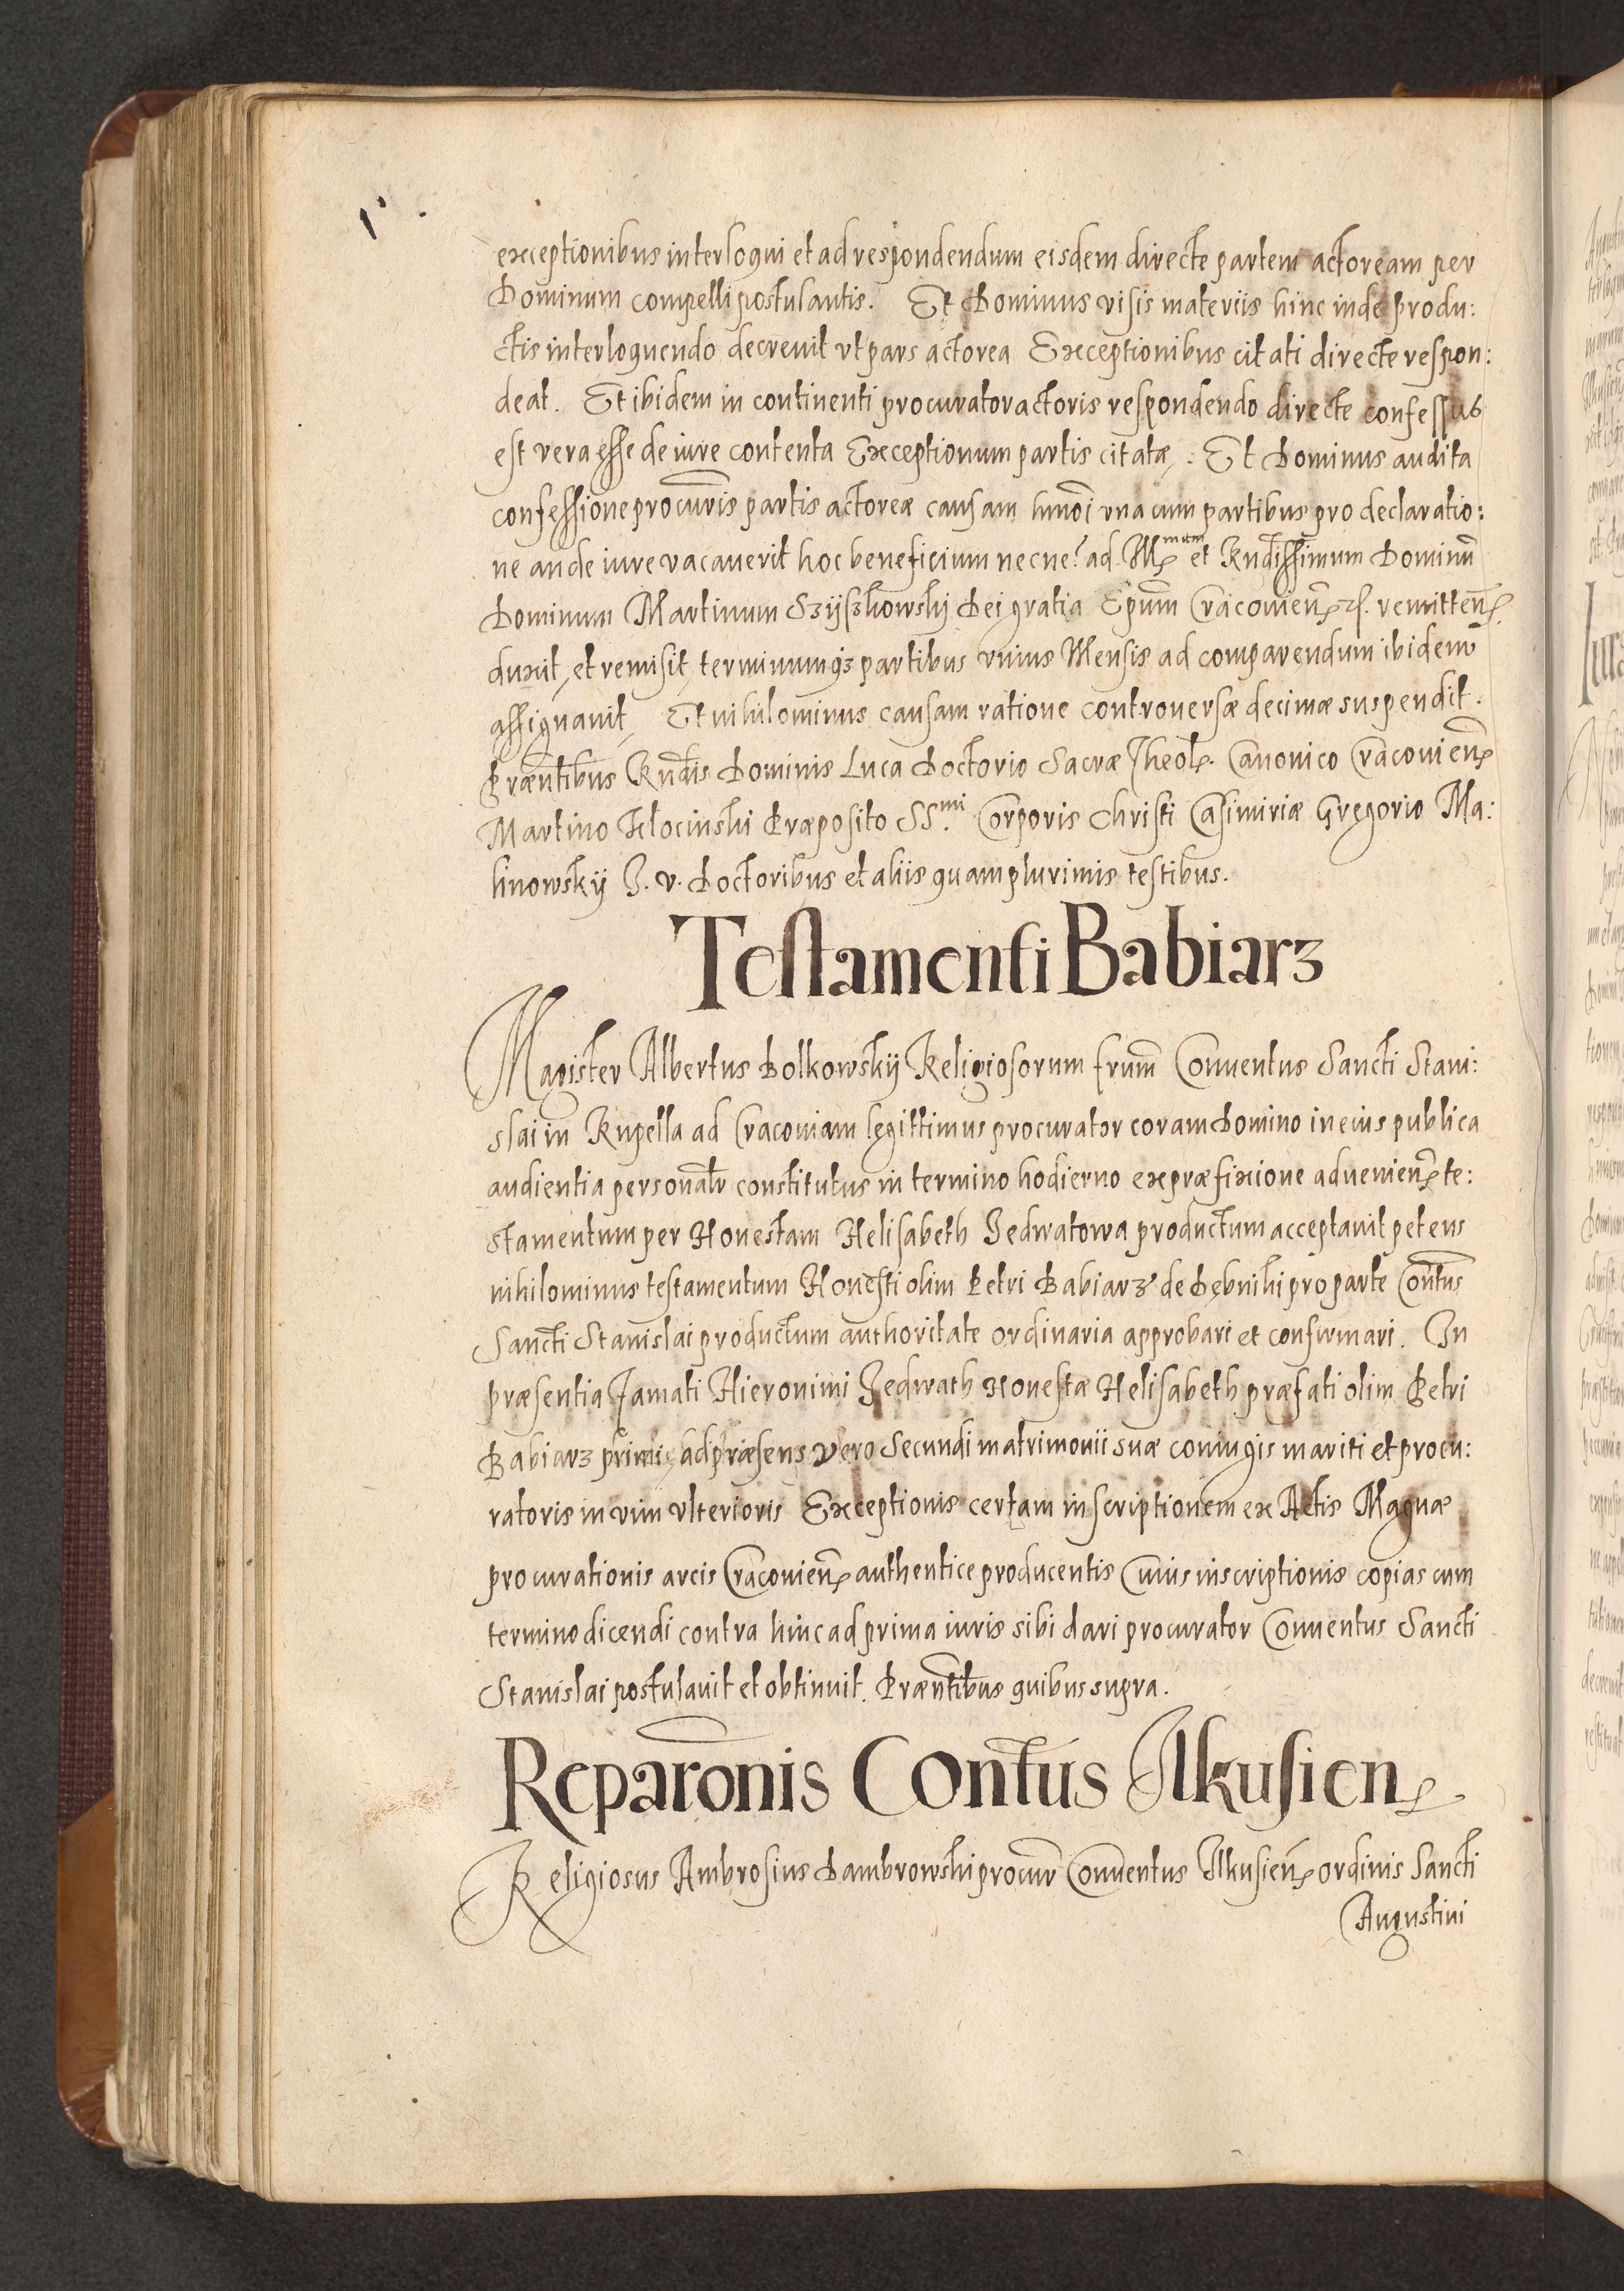 exceptionibus interloqui et ad respondendum eisdem directe partem actoream per
Dominum compelli postulantis. Et Dominus visis materiis hinc inde produ:
ctis interloquendo decrevit vt pars actorea Exceptionibus citati directe respon:
deat. Et ibidem in continenti procurator actoris respondendo directe confessus
est vera esse de iure contenta Exceptionum partis citatæ. Et Dominus audita
confessione procuris partis actoreæ causam hmoi vna cum partibus pro declaratio:
ne an de iure vacaverit hoc beneficium necne? ad Illmum et Rndissimum Dominū
Dominum Martinum Szyszkowski Dei gratia Epum Cracovien. remitten.
duxit, et remisit, terminumq3 partibus vnius Mensis ad comparendum ibidem
assignavit, Et nihilominus causam ratione controversæ decimæ suspendit.
Præntibus Rndis Dominis Luca Doctorio Sacræ Theol. Canonico Cracovien.
Martino Kłocinski Præposito SS.mi Corporis Christi Casimiriæ Gregorio Ma:
linowskij J. v. Doctoribus et aliis quamplurimis testibus.
Testamenti Babiarz
Magister Albertus Bolkowskij Religiosorum frum Conventus Sancti Stani:
slai in Rupella ad Cracoviam legittimus procurator coram Domino in eius publica
audientia personalr constitutus in termino hodierno ex præfixione advenien. te:
stamentum per Honestam Helisabeth Jedwatowa productum acceptavit petens
nihilominus testamentum Honesti olim Petri Babiarz de Dębniki pro parte Contus
Sancti Stanislai productum authoritate ordinaria approbari et confirmari. In
præsentia Famati Hieronimi Jedwath Honestæ Helisabeth præfati olim Petri
Babiarz primi, ad præsens vero Secundi matrimonii suæ coniugis mariti et procu:
ratoris in vim vlterioris Exceptionis certam inscriptionem ex Actis Magnæ
procurationis arcis Cracovien. authentice producentis Cuius inscriptionis copias cum
termino dicendi contra hinc ad prima iuris sibi dari procurator Conventus Sancti
Stanislai postulavit et obtinuit. Præntibus quibus supra.
Reparonis Contus Ilkusien.
Religiosus Ambrosius Dambrowski procur Conventus Ilkusien. ordinis Sancti
Augustini